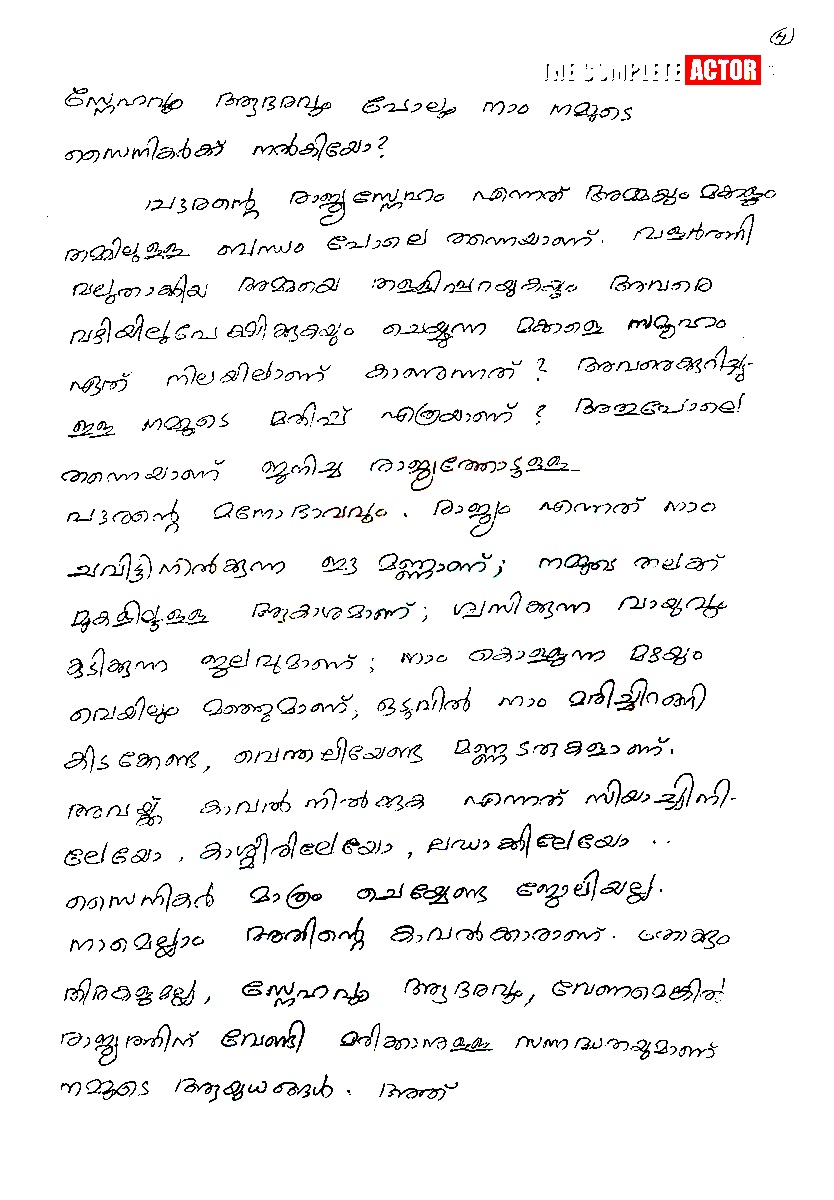 4
THE COMPLETE ACTOR
സ്നേഹവും ആദരവും പോലും നാം നമ്മുടെ
സൈനികർക്ക് നൽകിയോ?
പൗരന്റെ രാജ്യസ്നേഹം എന്നത് അമ്മക്കും മക്കളും
തമ്മിലുള്ള ബന്ധം പോലെ തന്നെയാണ്. വളർത്തി
വലുതാക്കിയ അമ്മയെ തള്ളിപ്പറയുകയും അവരെ
വഴിയിലുപേക്ഷിക്കുകയും ചെയ്യുന്ന മക്കളെ സമൂഹം
ഏത് നിലയിലാണ് കാണുന്നത്? അവരെക്കുറിച്ചു-
ള്ള നമ്മുടെ മതിപ്പ് എത്രയാണ്? അതുപോലെ
തന്നെയാണ് ജനിച്ച രാജ്യത്തോടുള്ള
പൗരന്റെ മനോഭാവവും. രാജ്യം എന്നത് നാം
ചവിട്ടി നിൽക്കുന്ന ഈ മണ്ണാണ്; നമ്മുടെ തലക്ക്
മുകളിലുള്ള ആകാശമാണ്; ശ്വസിക്കുന്ന വായുവും
കുടിക്കുന്ന ജലവുമാണ്; നാം കൊള്ളുന്ന മഴയും
വെയിലും മഞ്ഞുമാണ്, ഒടുവിൽ നാം മരിച്ചിറങ്ങി
കിടക്കേണ്ട, വെന്തലിയേണ്ട മണ്ണടരുകളാണ്.
അവയ്ക്ക് കാവൽ നിൽക്കുക എന്നത് സിയാച്ചിനി-
ലേയോ, കാശ്മീരിലേയോ, ലഡാക്കിലേയോ ..
സൈനികർ മാത്രം ചെയ്യേണ്ട ജോലിയല്ല.
നാമെല്ലാം അതിന്റെ കാവൽക്കാരാണ്. തോക്കും
തിരകളുമല്ല, സ്നേഹവും ആദരവും, വേണമെങ്കിൽ
രാജ്യത്തിന് വേണ്ടി മരിക്കാനുള്ള സന്നദ്ധതയുമാണ്
നമ്മുടെ ആയുധങ്ങൾ. അത്